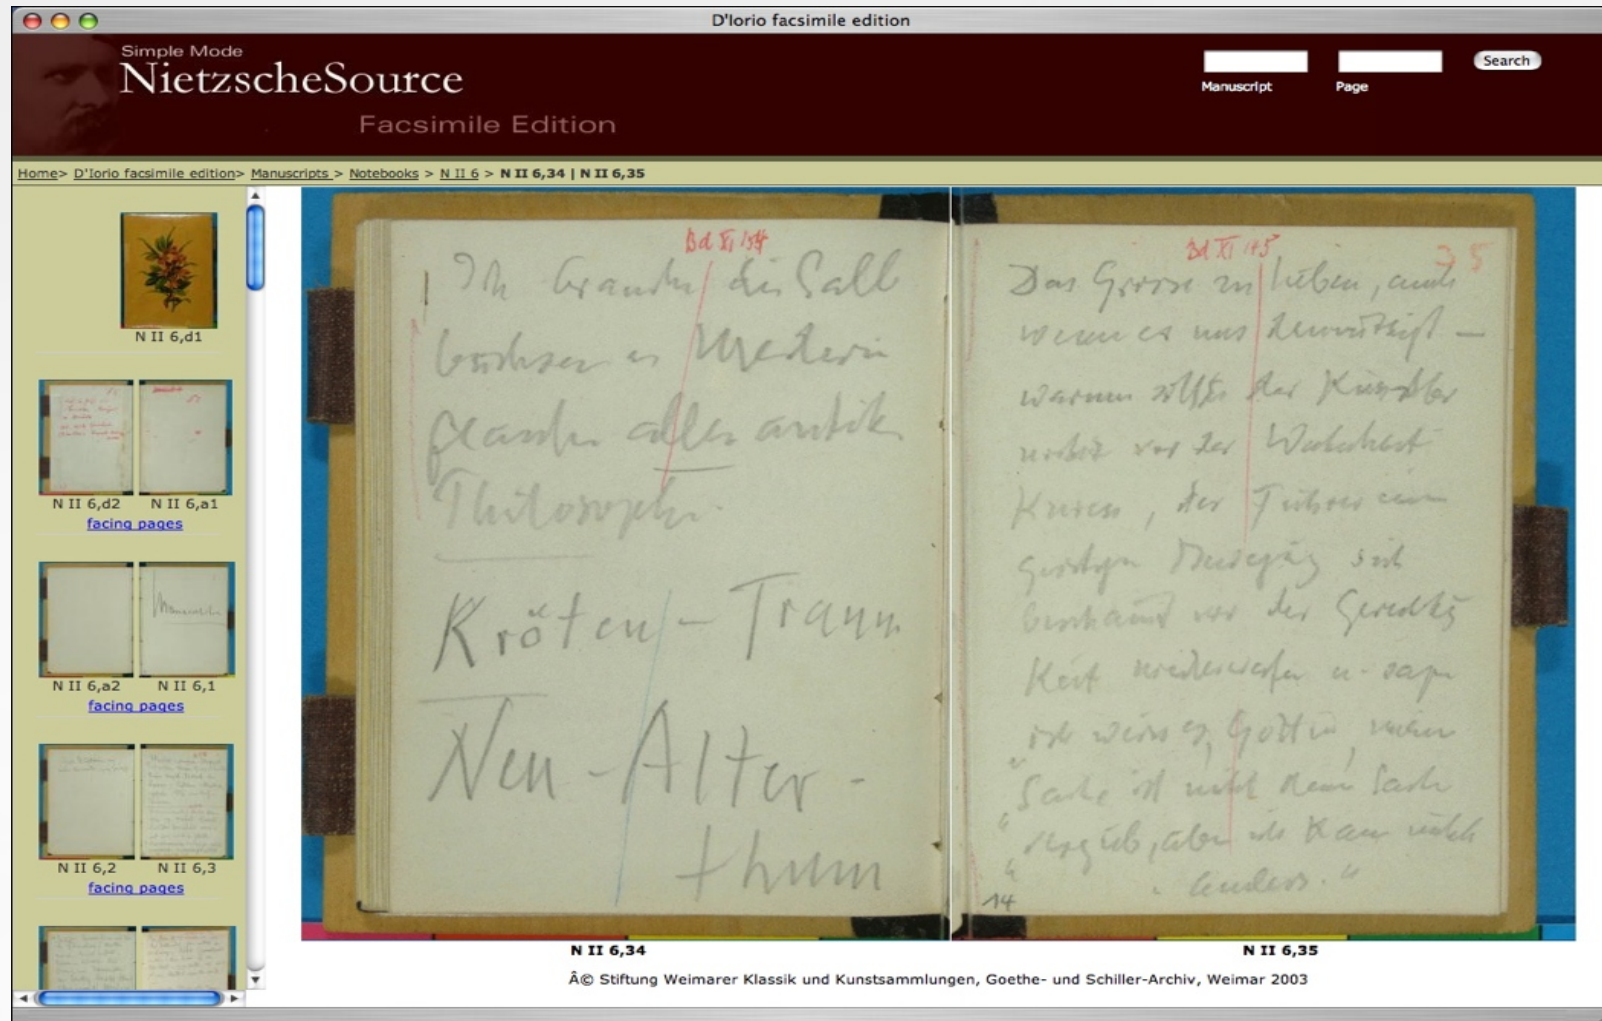 D'Iorio facsimile edition
Simple Mode
NietzscheSource
Facsimile Edition
Search
Manuscript
Page
Home> D'Iorio facsimile edition> Manuscripts > Notebooks > N II 6 > N II 6,34 | N II 6,35
N II 6,d1
N II 6,d2
N II 6,a1
facing pages
N II 6,a2
N II 6,1
facing pages
N II 6,2
N II 6,3
facing pages
Bd XI
Ich brauche die Salb
büchsen
aller antiken
Philosophen.
Kröten-Traum
Neu-Alter-
thum
Bd XI 145
35
Das Grosse zu lieben, auch
wenn es uns demüthigt —
warum sollte der Künstler
nicht vor der Wahrheit
knieen, der Führer einer
geistigen Bewegung sich
beschämt vor der Gerechtig
keit niederwerfen u. sagen
"ich weiss es, Göttin, meine
"Sache ist nicht deine Sache
"vergieb, aber ich kann nicht
"anders."
14
N II 6,34
N II 6,35
Â© Stiftung Weimarer Klassik und Kunstsammlungen, Goethe- und Schiller-Archiv, Weimar 2003